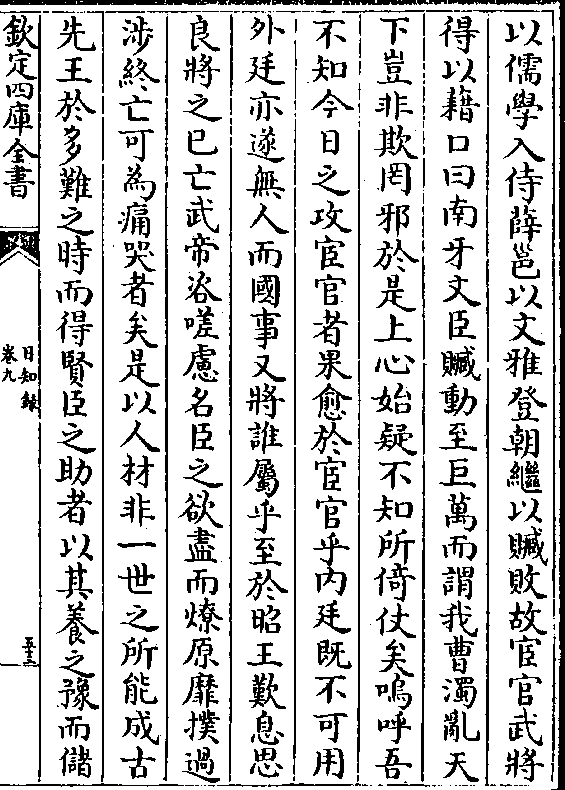 以儒學入侍薛邕以文雅登朝繼以贓敗故宦官武將
得以藉口曰南牙文臣贓動至巨萬而謂我曹濁亂天
下豈非欺罔邪於是上心始疑不知所倚仗矣嗚呼吾
不知今日之攻宦官者果愈於宦官乎内廷既不可用
外廷亦遂無人而國事又將誰屬乎至於昭王歎息思
良將之已亡武帝咨嗟慮名臣之欲盡而燎原靡撲過
涉終亡可為痛哭者矣是以人材非一世之所能成古
先王於多難之時而得賢臣之助者以其養之豫而儲
欽定四庫全書
日知録
卷九
五十三